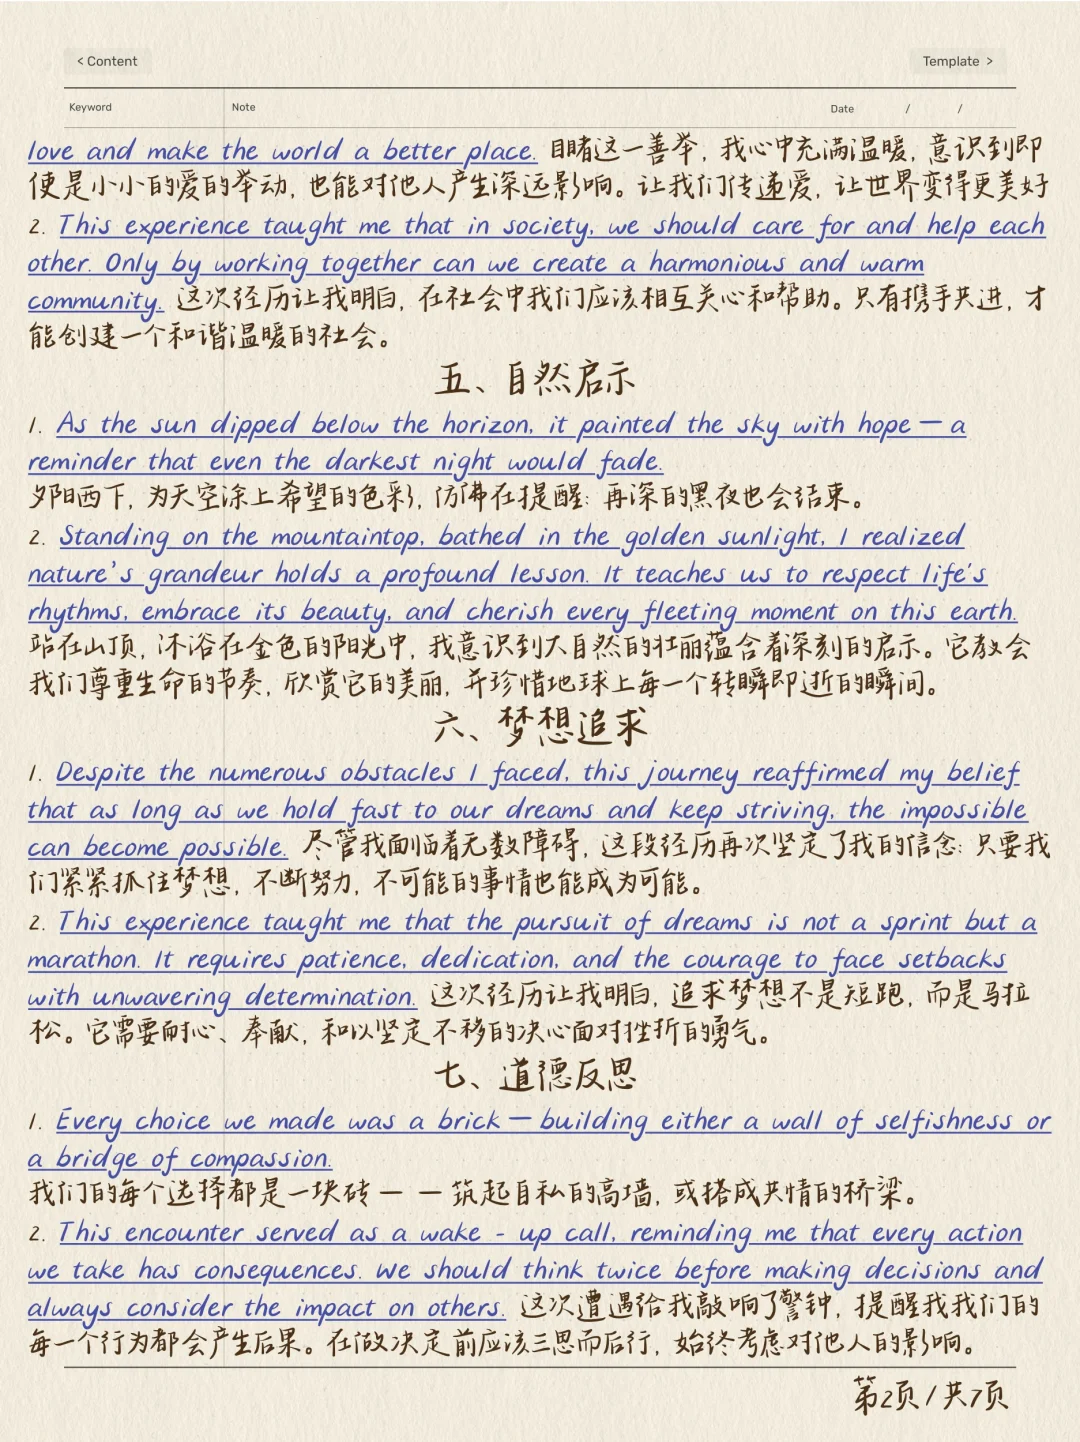 < Content
Template >
Keyword
Note
Date / /
love and make the world a better place. 目睹这一善举, 我心中充满温暖, 意识到即
便是小小的爱的举动, 也能对他人产生深远影响。让我们传递爱, 让世界变得更美好
2. This experience taught me that in society, we should care for and help each
other. Only by working together can we create a harmonious and warm
community. 这次经历让我明白, 在社会中我们应该相互关心和帮助。只有携手共进, 才
能创建一个和谐温暖的社会。
五、自然启示
1. As the sun dipped below the horizon, it painted the sky with hope — a
reminder that even the darkest night would fade.
夕阳西下, 为天空涂上希望的色彩, 仿佛在提醒: 再深的黑夜也会结束。
2. Standing on the mountaintop, bathed in the golden sunlight, I realized
nature's grandeur holds a profound lesson. It teaches us to respect life's
rhythms, embrace its beauty, and cherish every fleeting moment on this earth.
站在山顶, 沐浴在金色的阳光中, 我意识到大自然的壮丽蕴含着深刻的启示。它教会
我们尊重生命的节奏, 欣赏它的美丽, 并珍惜地球上每一个转瞬即逝的瞬间。
六、梦想追求
1. Despite the numerous obstacles I faced, this journey reaffirmed my belief
that as long as we hold fast to our dreams and keep striving, the impossible
can become possible. 尽管我面临着无数障碍, 这段经历再次坚定了我的信念: 只要我
们紧紧抓住梦想, 不断努力, 不可能的事情也能成为可能。
2. This experience taught me that the pursuit of dreams is not a sprint but a
marathon. It requires patience, dedication, and the courage to face setbacks
with unwavering determination. 这次经历让我明白, 追求梦想不是短跑, 而是马拉
松。它需要耐心、奉献, 和以坚定不移的决心面对挫折的勇气。
七、道德反思
1. Every choice we made was a brick — building either a wall of selfishness or
a bridge of compassion.
我们的每个选择都是一块砖 — — 筑起自私的高墙, 或搭成共情的桥梁。
2. This encounter served as a wake - up call, reminding me that every action
we take has consequences. We should think twice before making decisions and
always consider the impact on others. 这次遭遇给我敲响了警钟, 提醒我我们的
每一个行为都会产生后果。在做决定前应该三思而后行, 始终考虑对他人的影响。
第2页 / 共7页